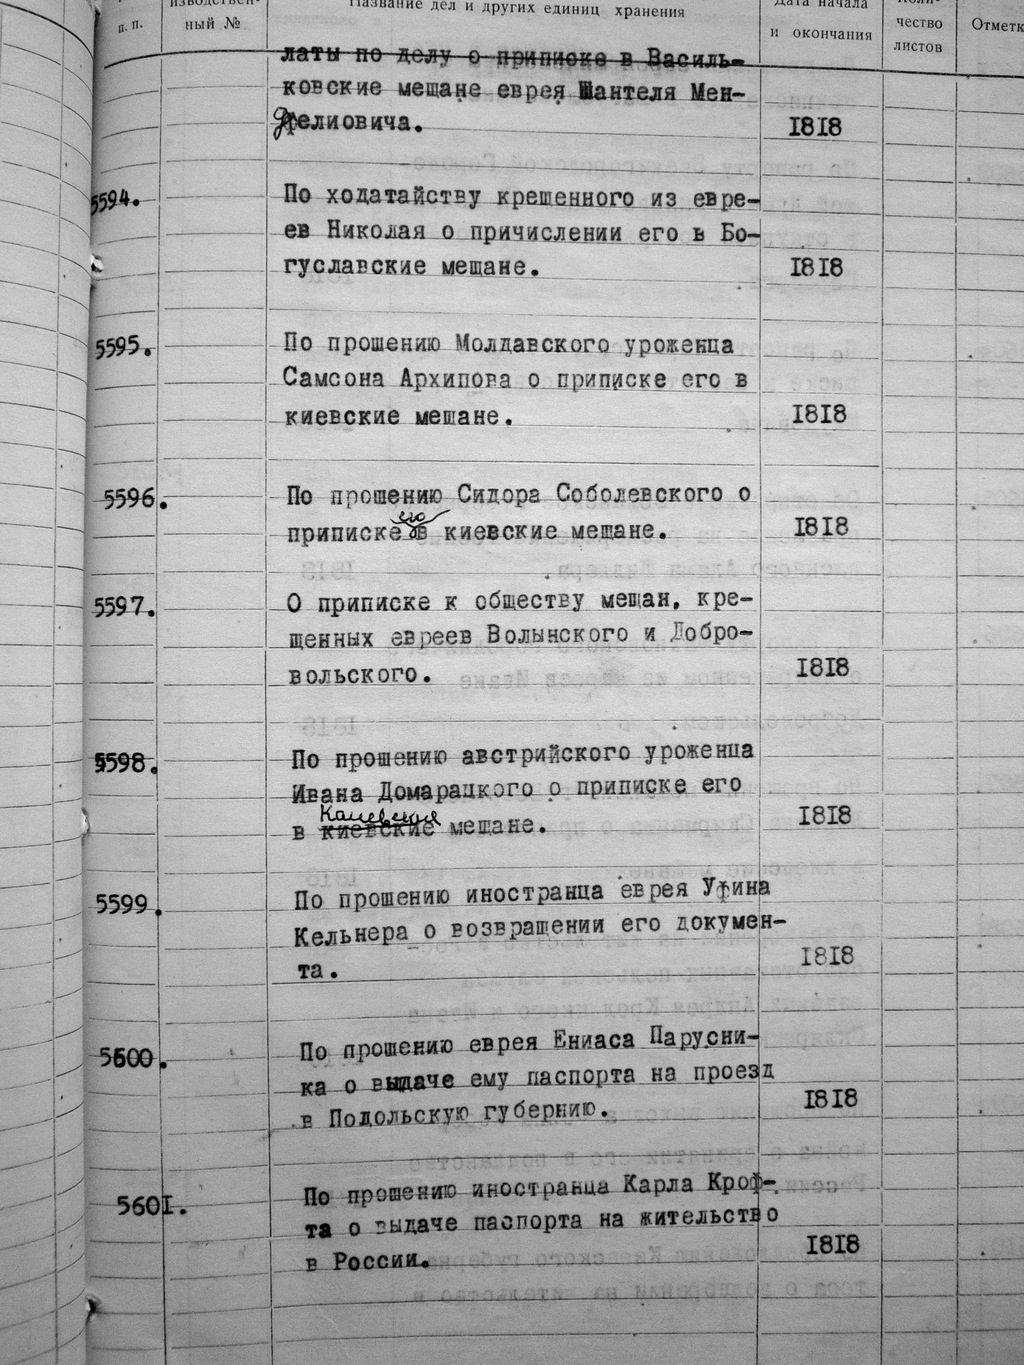 п.п.
ный №
Название дел и других единиц хранения
Дата начала
и окончания
чество
листов
Отметк
латы по делу о приписке в Василь-
ковские мещане еврея Шантеля Мен-
делиовича.
1818
5594.
По ходатайству крещенного из евре-
ев Николая о причислении его в Бо-
гуславские мещане.
1818
5595.
По прошению Молдавского уроженца
Самсона Архипова о приписке его в
киевские мещане.
1818
5596.
По прошению Сидора Соболевского о
его
приписке в киевские мещане.
1818
5597.
О приписке к обществу мещан, кре-
щенных евреев Волынского и Добро-
вольского.
1818
5598.
По прошению австрийского уроженца
Ивана Домарацкого о приписке его
Каневские
в киевские мещане.
1818
5599.
По прошению иностранца еврея Уфина
Кельнера о возвращении его докумен-
та.
1818
5600.
По прошению еврея Ениаса Парусни-
ка о выдаче ему паспорта на проезд
в Подольскую губернию.
1818
5601.
По прошению иностранца Карла Кроф-
та о выдаче паспорта на жительство
в России.
1818